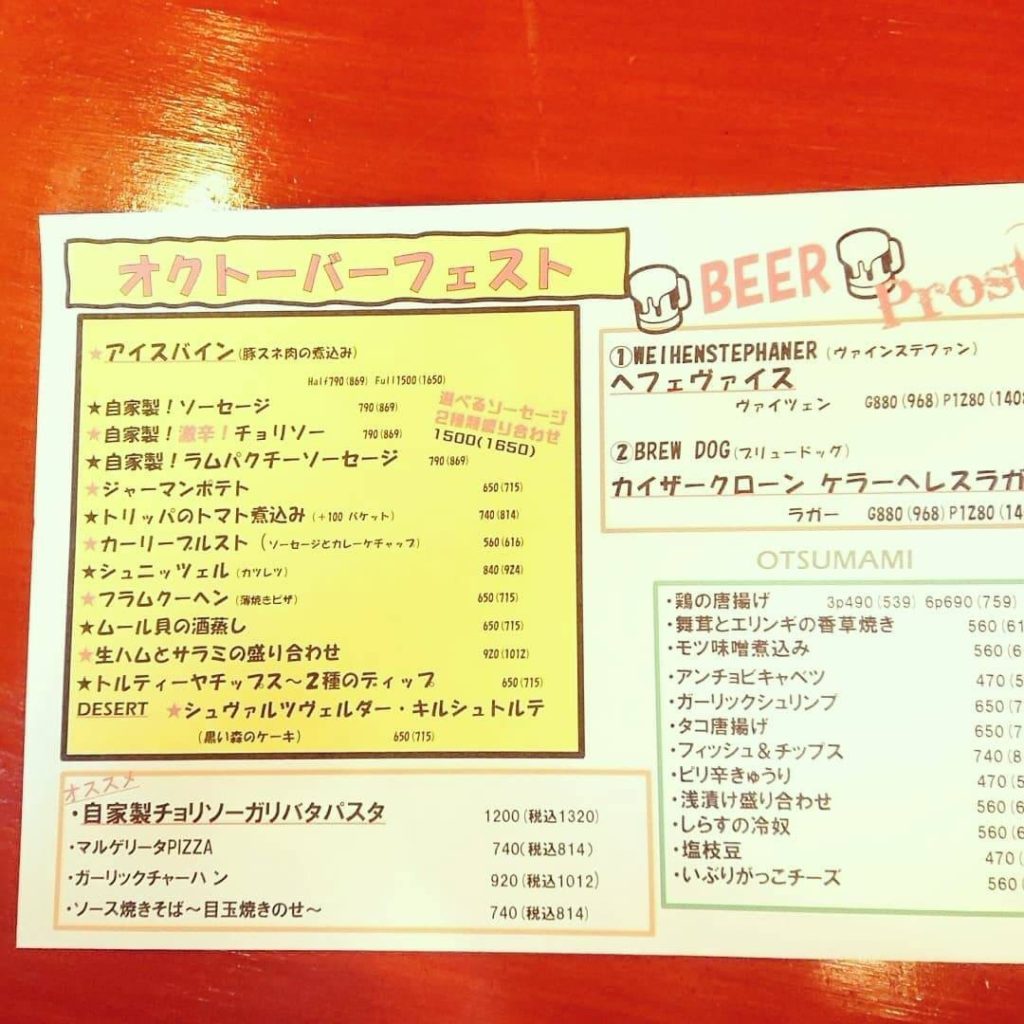 オクトーバーフェスト
★アイスバイン(豚スネ肉の煮込み)
Half790(869) Full1500(1650)
★自家製!ソーセージ 790(869)
★自家製!激辛!チョリソー 790(869)
選べるソーセージ
2種類盛り合わせ
1500(1650)
★自家製!ラムパクチーソーセージ 790(869)
★ジャーマンポテト 650(715)
★トリッパのトマト煮込み(+100 バケット) 740(814)
★カーリーブルスト(ソーセージとカレーケチャップ) 560(616)
★シュニッツェル(カツレツ) 840(924)
★フラムクーヘン(薄焼きピザ) 650(715)
★ムール貝の酒蒸し 650(715)
★生ハムとサラミの盛り合わせ 920(1012)
★トルティーヤチップス〜2種のディップ 650(715)
DESERT ★シュヴァルツヴェルダー・キルシュトルテ
(黒い森のケーキ) 650(715)
オススメ
・自家製チョリソーガリバタパスタ 1200(税込1320)
・マルゲリータPIZZA 740(税込814)
・ガーリックチャーハン 920(税込1012)
・ソース焼きそば〜目玉焼きのせ〜 740(税込814)
BEER
Prost
①WEIHENSTEPHANER(ヴァインステファン)
ヘフェヴァイス
ヴァイツェン G880(968)P1280(1408
②BREW DOG(ブリュードッグ)
カイザークローン ケラーヘレスラガ
ラガー G880(968)P1280(14
OTSUMAMI
・鶏の唐揚げ 3p490(539) 6p690(759)
・舞茸とエリンギの香草焼き 560(61
・モツ味噌煮込み 560(6
・アンチョビキャベツ 470(5
・ガーリックシュリンプ 650(7
・タコ唐揚げ 650(7
・フィッシュ&チップス 740(8
・ピリ辛きゅうり 470(5
・浅漬け盛り合わせ 560(6
・しらすの冷奴 560(6
・塩枝豆 470(
・いぶりがっこチーズ 560(